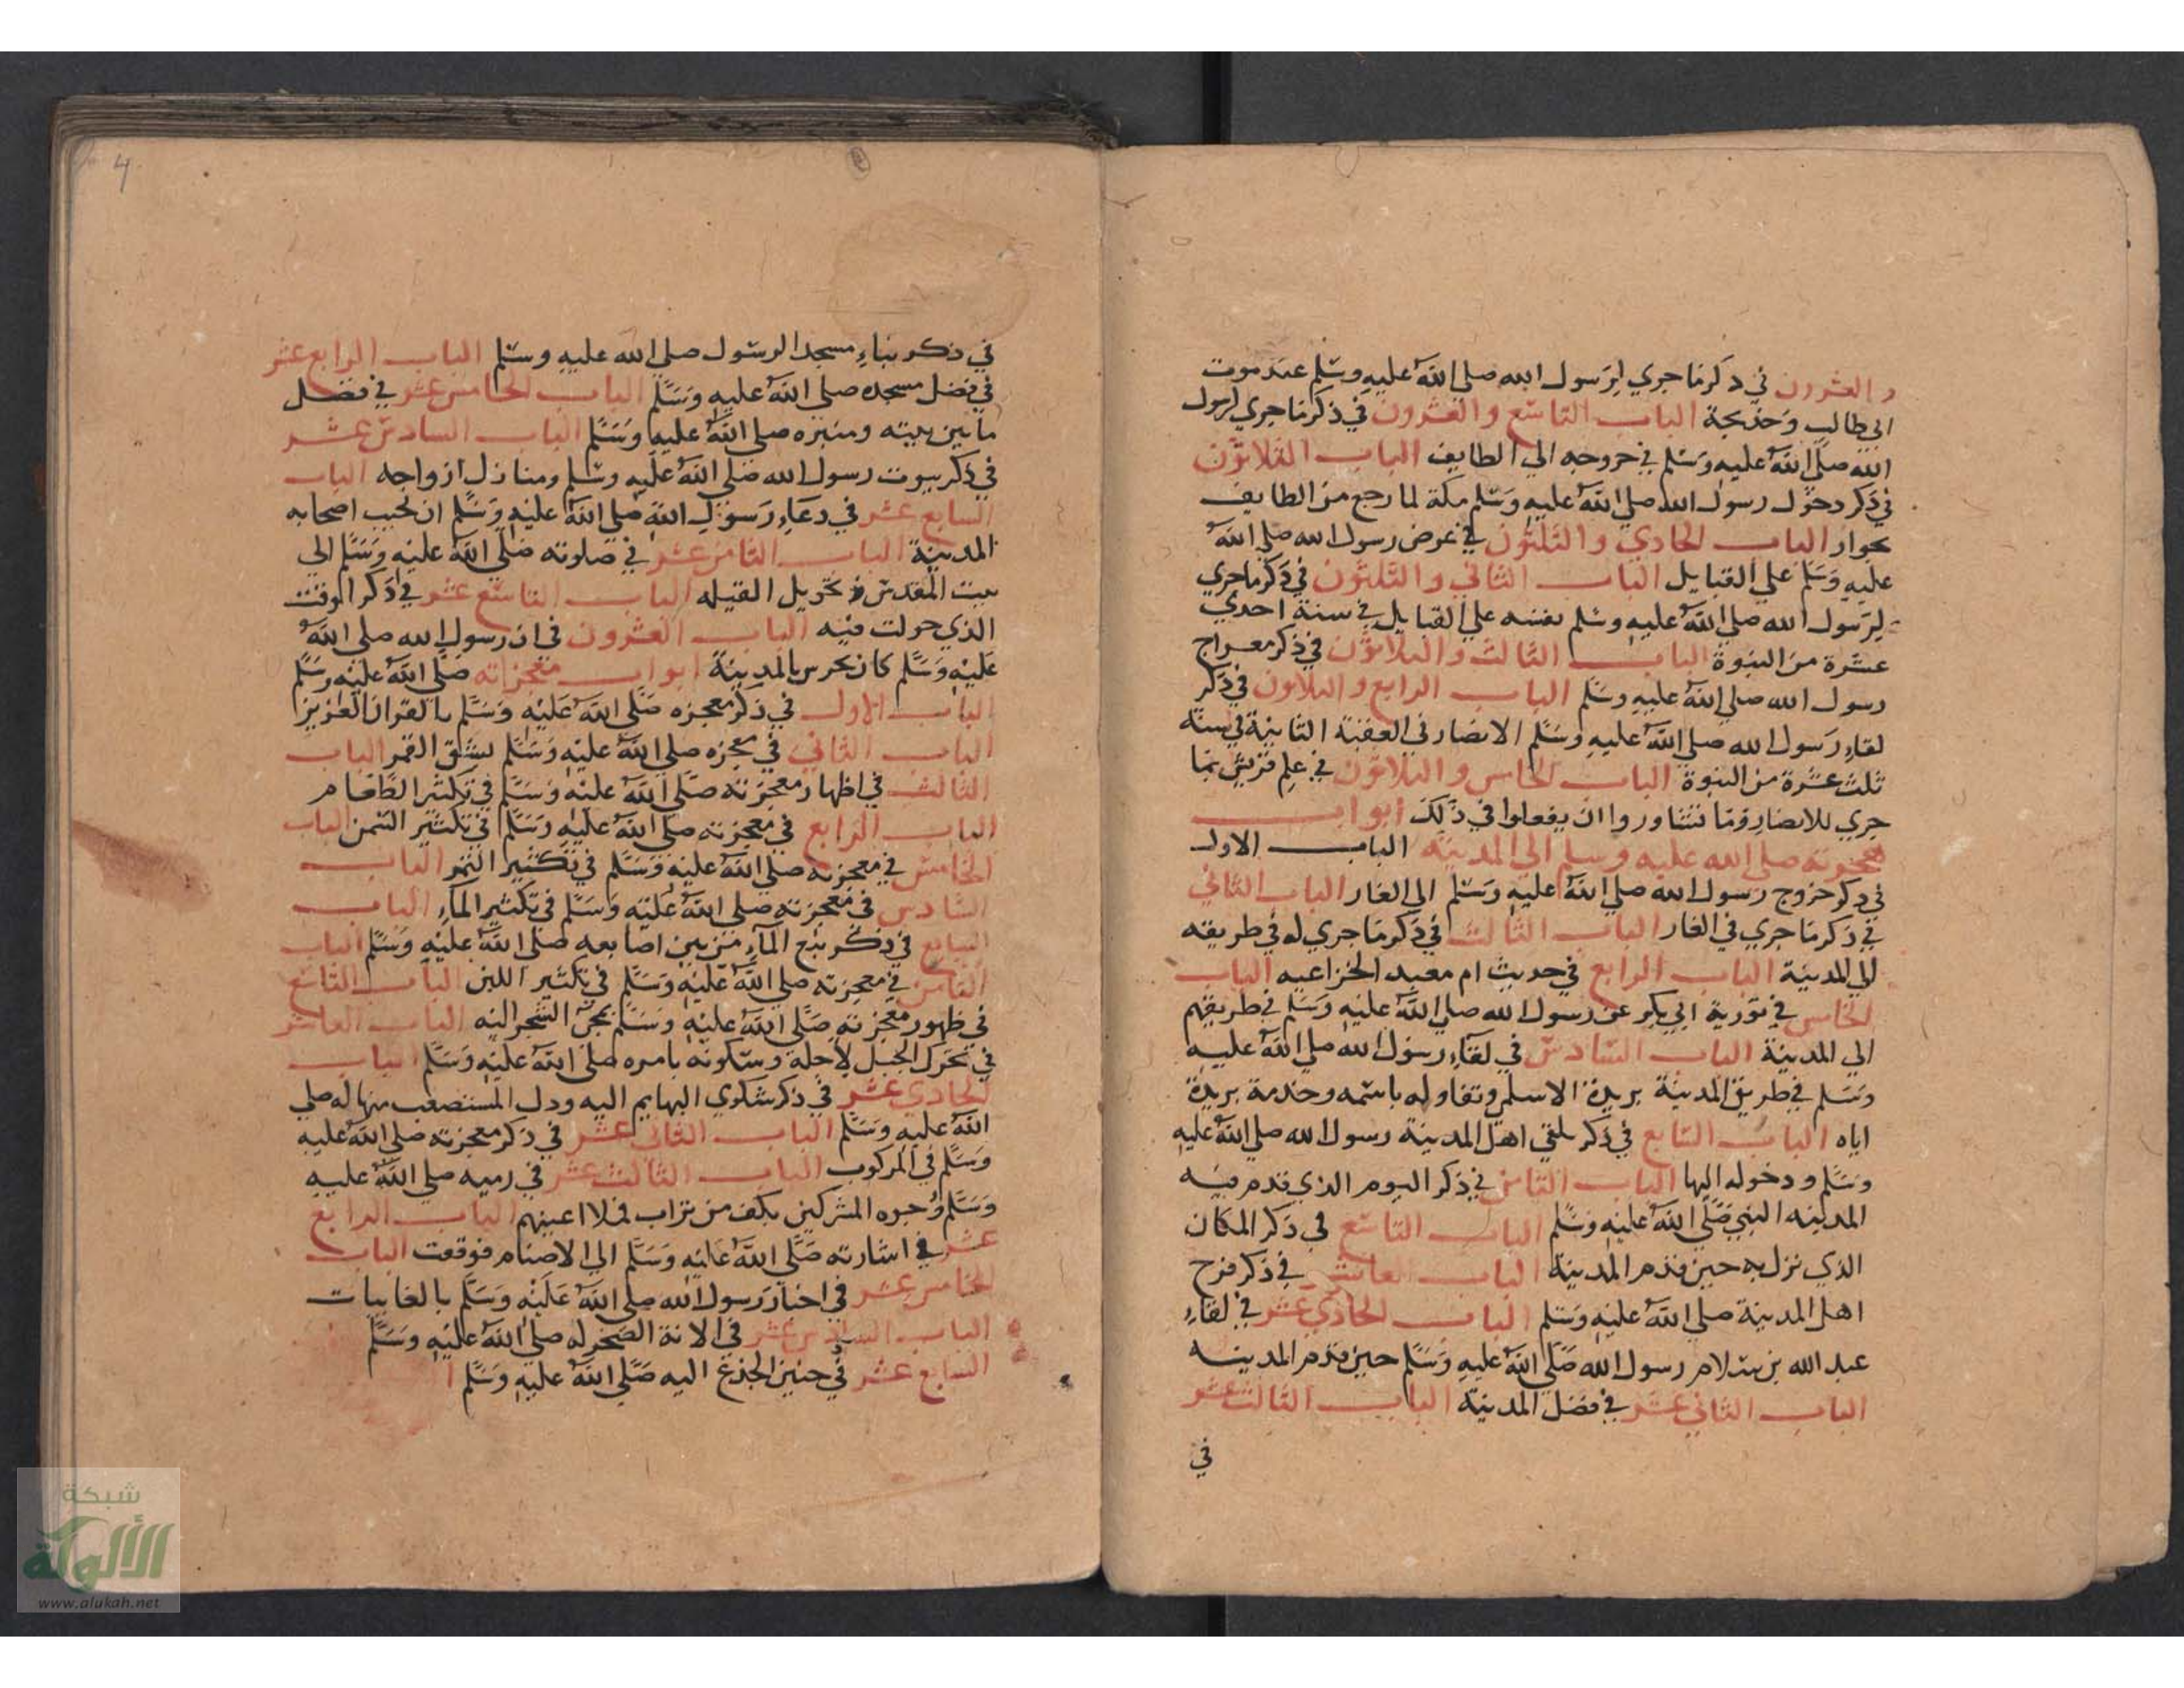 والعشرون في ذكر ما جري لرسول الله صلي الله عليه وسلم عند موت
ابي طالب وخديجة الباب التاسع والعشرون في ذكر ما جري لرسول
الله صلي الله عليه وسلم في خروجه الي الطايف الباب الثلاثون
في ذكر دخول رسول الله صلي الله عليه وسلم مكة لما رجع من الطايف
بجوار الباب الحادي والثلثون في عرض رسول الله صلي الله
عليه وسلم علي القبايل الباب الثاني والثلثون في ذكر ما جري
لرسول الله صلي الله عليه وسلم بفسه علي القبايل في سنة احدي
عشرة من النبوة الباب الثالث والثلاثون في ذكر معراج
رسول الله صلي الله عليه وسلم الباب الرابع والثلاثون في ذكر
لقاء رسول الله صلي الله عليه وسلم الانصار في العقبة الثانية في سنة
ثلث عشرة من النبوة الباب الخامس والثلاثون في علم قريش بما
جري للانصار وما تشاوروا ان يفعلوا في ذلك ابواب
هجرته صلي الله عليه وسلم الي المدينة الباب الاول
في ذكر خروج رسول الله صلي الله عليه وسلم الي الغار الباب الثاني
في ذكر ما جري في الغار الباب الثالث في ذكر ما جري له في طريقه
الي المدينة الباب الرابع في حديث ام معبد الخزاعيه الباب
الخامس في تورية ابي بكر عن رسول الله صلي الله عليه وسلم في طريقهم
الي المدينة الباب السادس في لقاء رسول الله صلي الله عليه
وسلم في طريق المدينة بريدة الاسلمي وتفاوله باسمه وخدمة بريدة
اياه الباب السابع في ذكر تلقي اهل المدينة رسول الله صلي الله عليه
وسلم ودخوله اليها الباب الثامن في ذكر اليوم الذي قدم فيه
المدينه النبي صلي الله عليه وسلم الباب التاسع في ذكر المكان
الذي نزل به حين قدم المدينة الباب العاشر في ذكر فرح
اهل المدينة صلي الله عليه وسلم الباب الحادي عشر في لقاء
عبد الله بن سلام رسول الله صلي الله عليه وسلم حين قدم المدينه
الباب الثاني عشر في فضل المدينة الباب الثالث عشر
في
4
في ذكر بناء مسجد الرسول صلي الله عليه وسلم الباب الرابع عشر
في فضل مسجده صلي الله عليه وسلم الباب الخامس عشر في فضل
ما بين بيته ومنبره صلي الله عليه وسلم الباب السادس عشر
في ذكر بيوت رسول الله صلي الله عليه وسلم ومنازل ازواجه الباب
السابع عشر في دعاء رسول الله صلي الله عليه وسلم ان يحبب اصحابه
المدينة الباب الثامن عشر في صلوته صلي الله عليه وسلم الي
بيت المقدس وتحويل القبله الباب التاسع عشر في ذكر الوقت
الذي حولت فيه الباب العشرون في ان رسول الله صلي الله
عليه وسلم كان يحرس بالمدينة ابواب معجزاته صلي الله عليه وسلم
الباب الاول في ذكر معجزه صلي الله عليه وسلم بالقران العزيز
الباب الثاني في معجزه صلي الله عليه وسلم بشق القمر الباب
الثالث في اظهار معجزته صلي الله عليه وسلم في تكثير الطعام
الباب الرابع في معجزته صلي الله عليه وسلم في تكثير السمن الباب
الخامس في معجزته صلي الله عليه وسلم في تكثير التمر الباب
السادس في معجزته صلي الله عليه وسلم في تكثير المآء الباب
السابع في ذكر نبع المآء من بين اصابعه صلي الله عليه وسلم الباب
الثامن في معجزته صلي الله عليه وسلم في تكثير اللبن الباب التاسع
في ظهور معجزته صلي الله عليه وسلم بمجئ الشجر اليه الباب العاشر
في تحرك الجبل لاجله وسكونه بامره صلي الله عليه وسلم الباب
الحادي عشر في ذكر شكوي البهايم اليه وذل المستصعب منها له صلي
الله عليه وسلم الباب الثاني عشر في ذكر معجزته صلي الله عليه
وسلم في المركوب الباب الثالث عشر في رميه صلي الله عليه
وسلم وجوه المشركين بكف من تراب فملا اعينهم الباب الرابع
عشر في اشارته صلي الله عليه وسلم الي الاصنام فوقعت الباب
الخامس عشر في اخبار رسول الله صلي الله عليه وسلم بالغايبات
الباب السادس عشر في الانة الصخر له صلي الله عليه وسلم
السابع عشر في حنين الجذع اليه صلي الله عليه وسلم
شبكة
الألوكة
www.alukah.net